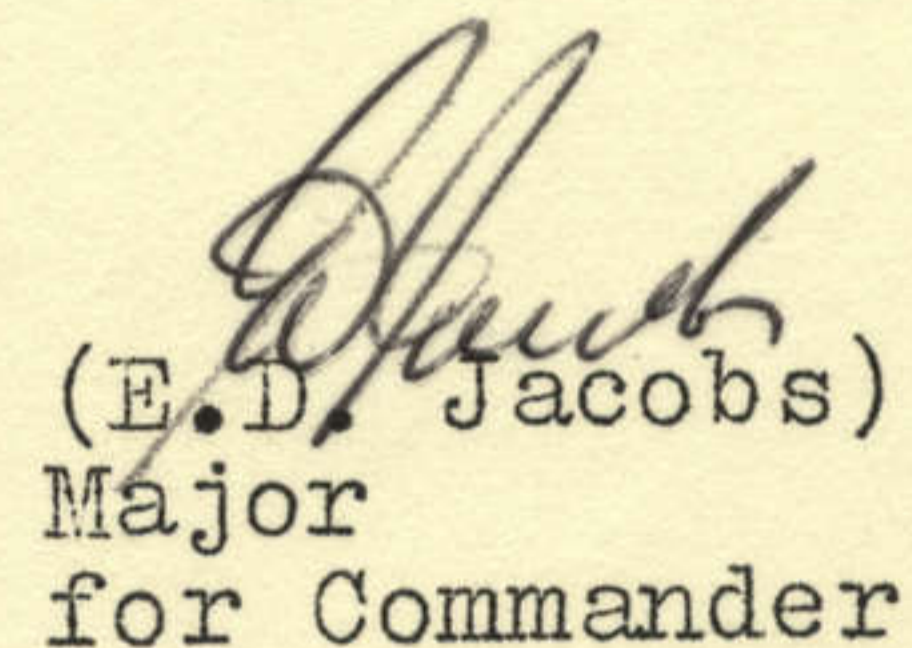 (E.D. Jacobs)
Major
for Commander